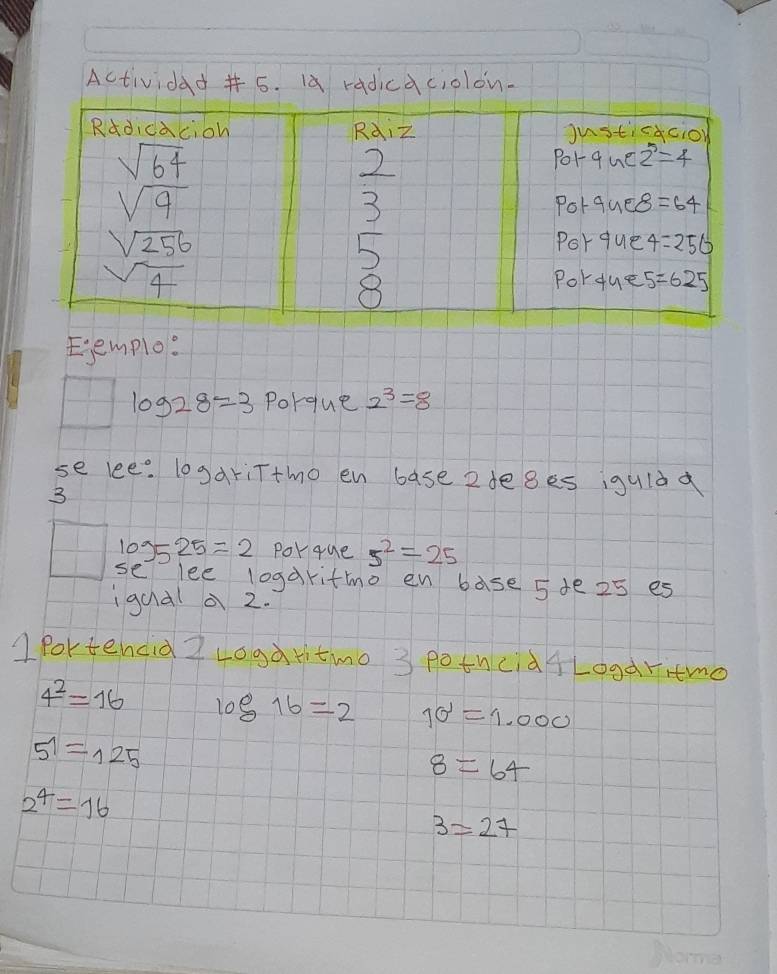 Actividad # 5. la radicaciolón.
Radicacion Raiz Justicacion
√64 2 Porque 2²=4
√9 3 Porque 8=64
√256 5 Porque 4=256
√4 8 Porque 5=625
Ejemplo:
log28=3 Porque 2³=8
se lee: logariTtmo en base 2 de 8 es iguld a
3
log525=2 porque 5²=25
se lee logaritmo en base 5 de 25 es
igual a 2.
1 Portencia 2 Logaritmo 3 Potncia 4 Logaritmo
4²=16 log 16=2 10¹=1.000
5¹=125 8=64
2⁴=16 3=27
Norma